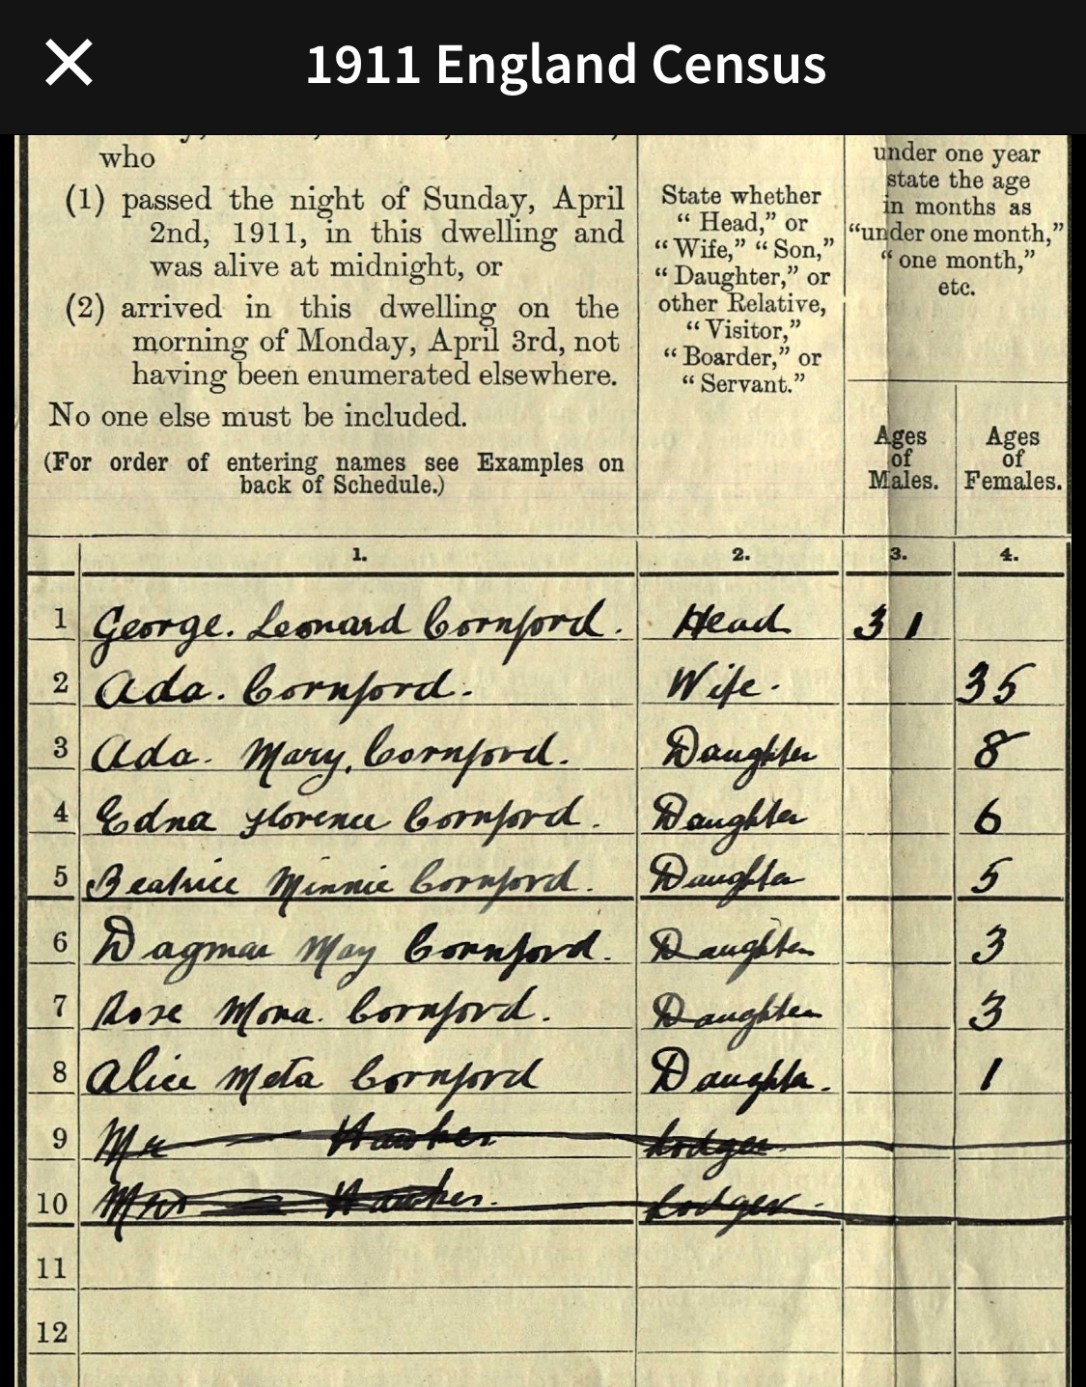 1911 England Census
who
(1) passed the night of Sunday, April
2nd, 1911, in this dwelling and
was alive at midnight, or
(2) arrived in this dwelling on the
morning of Monday, April 3rd, not
having been enumerated elsewhere.
No one else must be included.
(For order of entering names see Examples on
back of Schedule.)
State whether
“ Head,” or
“ Wife,” “ Son,”
“ Daughter,” or
other Relative,
“ Visitor,”
“ Boarder,” or
“ Servant.”
under one year
state the age
in months as
“under one month,”
“ one month,”
etc.
Ages
of
Males.
Ages
of
Females.
1. 2. 3. 4.
1 George. Leonard Cornford. Head 31
2 Ada. Cornford. Wife. 35
3 Ada. Mary. Cornford. Daughter 8
4 Edna Florence Cornford. Daughter 6
5 Beatrice Minnie Cornford. Daughter 5
6 Dagmar May Cornford. Daughter 3
7 Rose Mona. Cornford. Daughter 3
8 Alice Meta Cornford Daughter. 1
9 Mr Hawker Lodger
10 Mrs Hawker. Lodger
11
12